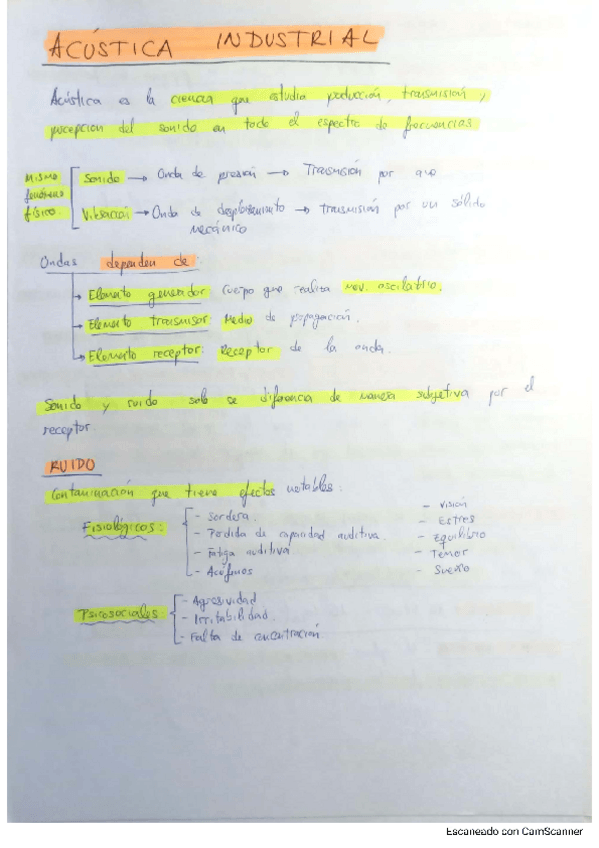 ACÚSTICA INDUSTRIAL
Acústica es la ciencia que estudia producción, transmisión,
percepción del sonido en todo el espectro de frecuencias.
Mismo fenómeno físico.
Sonido → Onda de presión → Transmisión por aire
Vibración → Onda de desplazamiento mecánico → transmisión por un sólido
Ondas dependen de:
Elemento generador: Cuerpo que realiza mov. oscilatorio.
Elemento transmisor: Medio de propagación.
Elemento receptor: Receptor de la onda.
Sonido y ruido solo se diferencia de manera subjetiva por el
receptor.
RUIDO
Contaminación que tiene efectos notables:
Fisiológicos:
- Sordera.
- Perdida de capacidad auditiva.
- Fatiga auditiva
- Acúfenos
- Visión
- Estres
- Equilibrio
- Temor
- Sueño
Psicosociales:
- Agresividad
- Irritabilidad.
- Falta de concentración
Escaneado con CamScanner